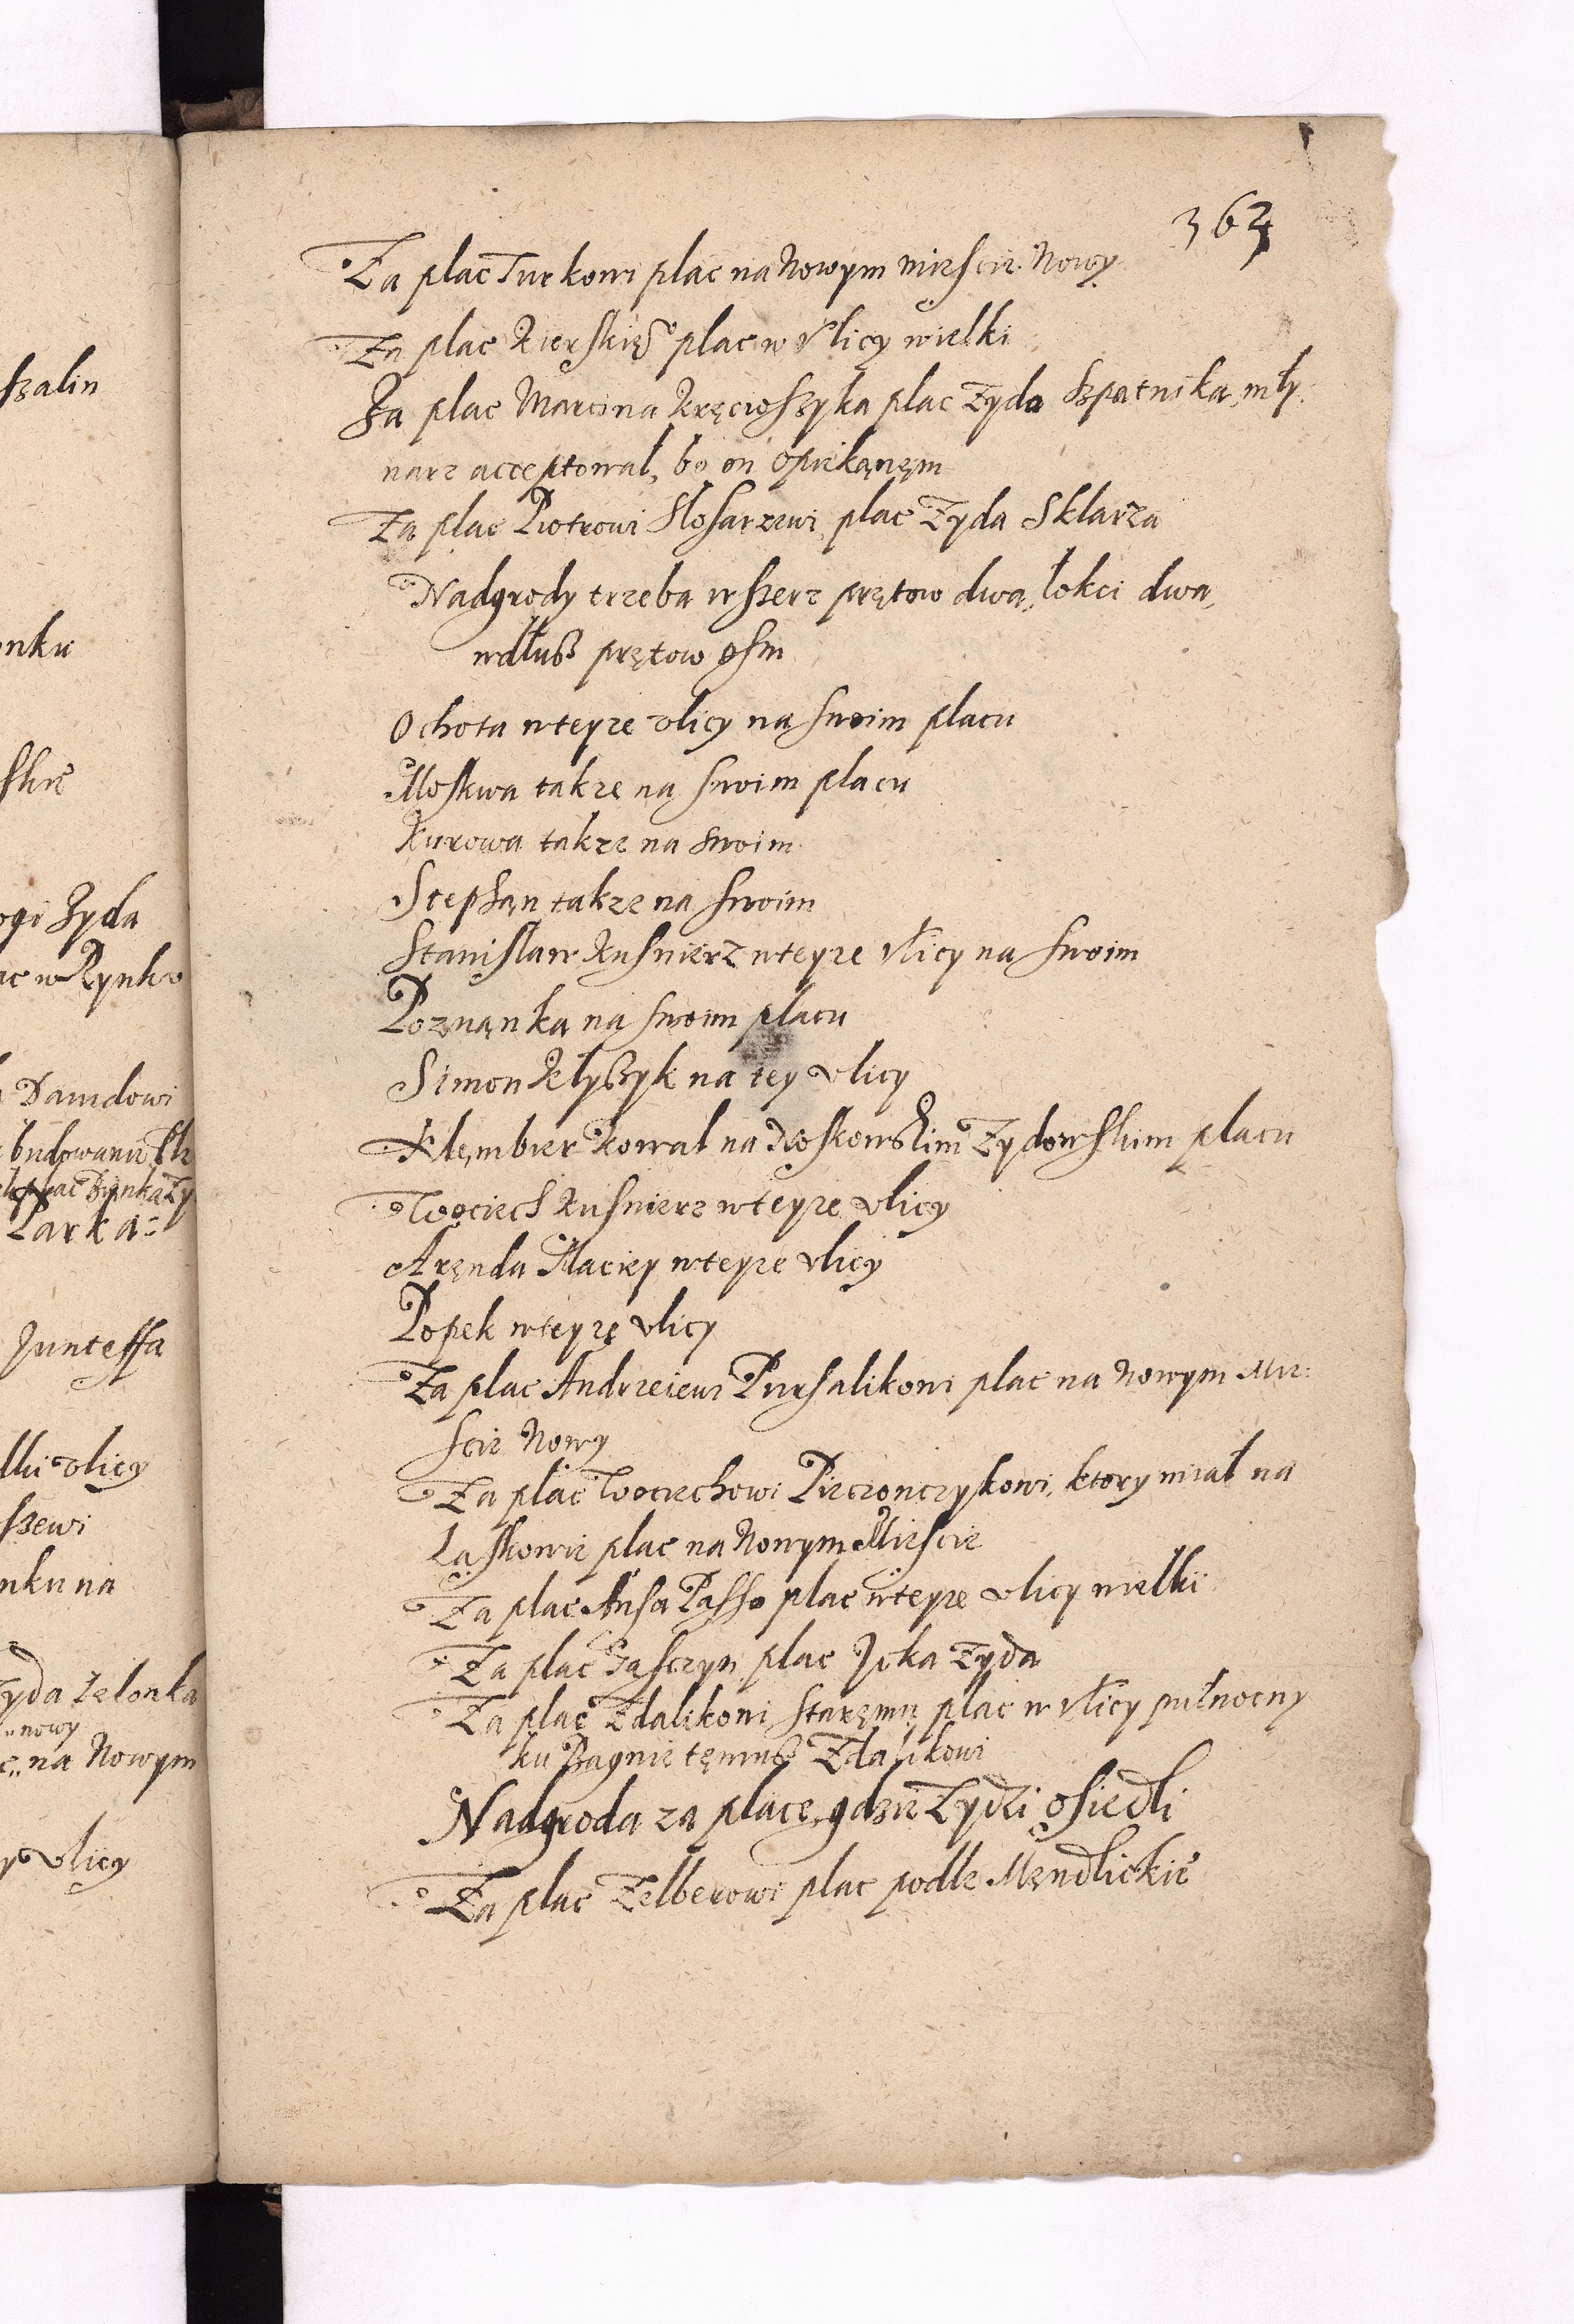 szalin
nku
skie
ogi Zyda
ac w Rynku
Dawidowi
budowanie
Parka
Junteffa
lki vlicy
szewi
nku na
Zyda Zelonka
nowy
na Nowym
y vlicy
363
Za plac Turkowi plac na Nowym miescie Nowy
Za plac Kierskie° plac w Vlicy wielki
Za plac Marcina Kręcioszyka plac Zyda Szpatnika, mły:
narz acceptował, bo on opiekąnęm
Za plac Piotrowi Slosarzewi, plac Zyda Sklarza
Nadgrody trzeba wszerz prętow dwa, łokci dwa,
wdłusz prętow osm
Ochota wteyze vlicy na swoim placu
Moskwa takze na swoim placu
Kurowa takze na swoim
Stephąn takze na swoim
Stanisław Kusnierz wteyze Vlicy na swoim
Poznąnka na swoim placu
Simon Kłyszyk na tey vlicy
Klęmbier Kowal na Noskowskim Zydowskim placu
Woiciech Kusnierz wteyze vlicy
Aręnda Maciey wteyze vlicy
Popek wteyzę vlicy
Za plac Andrzeiewi Pursalikowi plac na Nowym Mie:
scie Nowy
Za plac Woiciechowi Pierzonczykowi, ktory miał na
Laskowie plac na Nowym Miescie
Za plac Ansa Passo plac wteyze vlicy wielki
Za plac Jasczyn plac Jcka Zyda
Za plac Zdalikowi staręmu plac w Vlicy pułnocny
ku Bagnie tęmusz Zdalikowi
Nadgroda za place, gdzie Zydzi osiedli
Za plac Zelberowi plac podle Męndlickie°